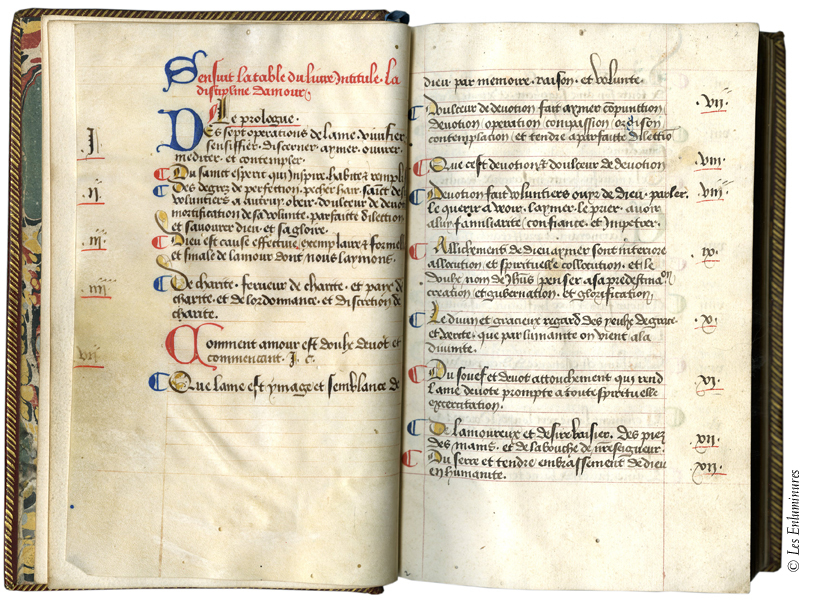 Sensuit la table du livre Intitule. la
discipline damour.
Le prologue.
I.
Des sept operations de lame. vivifier
sensiffier. discerner. aymer. ouvrer.
mediter. et contempler
Du saint esperit qui inspire. habite & rempli
ii.
Des degrez de perfection. pechez hair.
voluntiers a autruy. obeir. doulceur de devo
mortification de sa volunte. parfaite dilection
et savourer dieu. et sa gloire.
iii.
Dieu est cause effective. exemplaire & formell
et finale de lamour dont nous laymons.
iiii.
De charite. ferveur de charite. et paix de
charite. et de lordonnance. et discretion de
charite.
Comment amour est doulx devot et
commencant. J. c.
vii
Que lame est ymage et semblance de
dieu par memoire. raison. et volunte.
Doulceur de devotion fait aymer compunction
vii.
devotion operation compassion oraison
contemplation et tendre a parfaite dilectio
Que cest devotion & doulceur de devotion
viii.
Devotion fait voluntiers ouyr de dieu. parler.
viiii.
le querir a veoir. laymer. le prier. avoir
a luy familiarite confiance. et impetrer.
Allichemens de dieu aymer sont interiore
ix.
allocution. et spirituelle collocution. et le
doulx nom de Jhus penser a sa predestinaon
creation et gubernation. et glorification.
Le divin et gracieux regard des yeulx de grace
.x.
et verite. que par lumanite on vient a la
divinite.
Du souef et devot attouchement qui rend
xi.
lame devote prompte a toute spirituelle
excercitation.
De lamoureux et desire baisier. des piez
xii.
des mains. et de la bouche de nre seigneur.
Du serre et tendre embrassement de dieu
xii.
en humanite.
© Les Enluminures